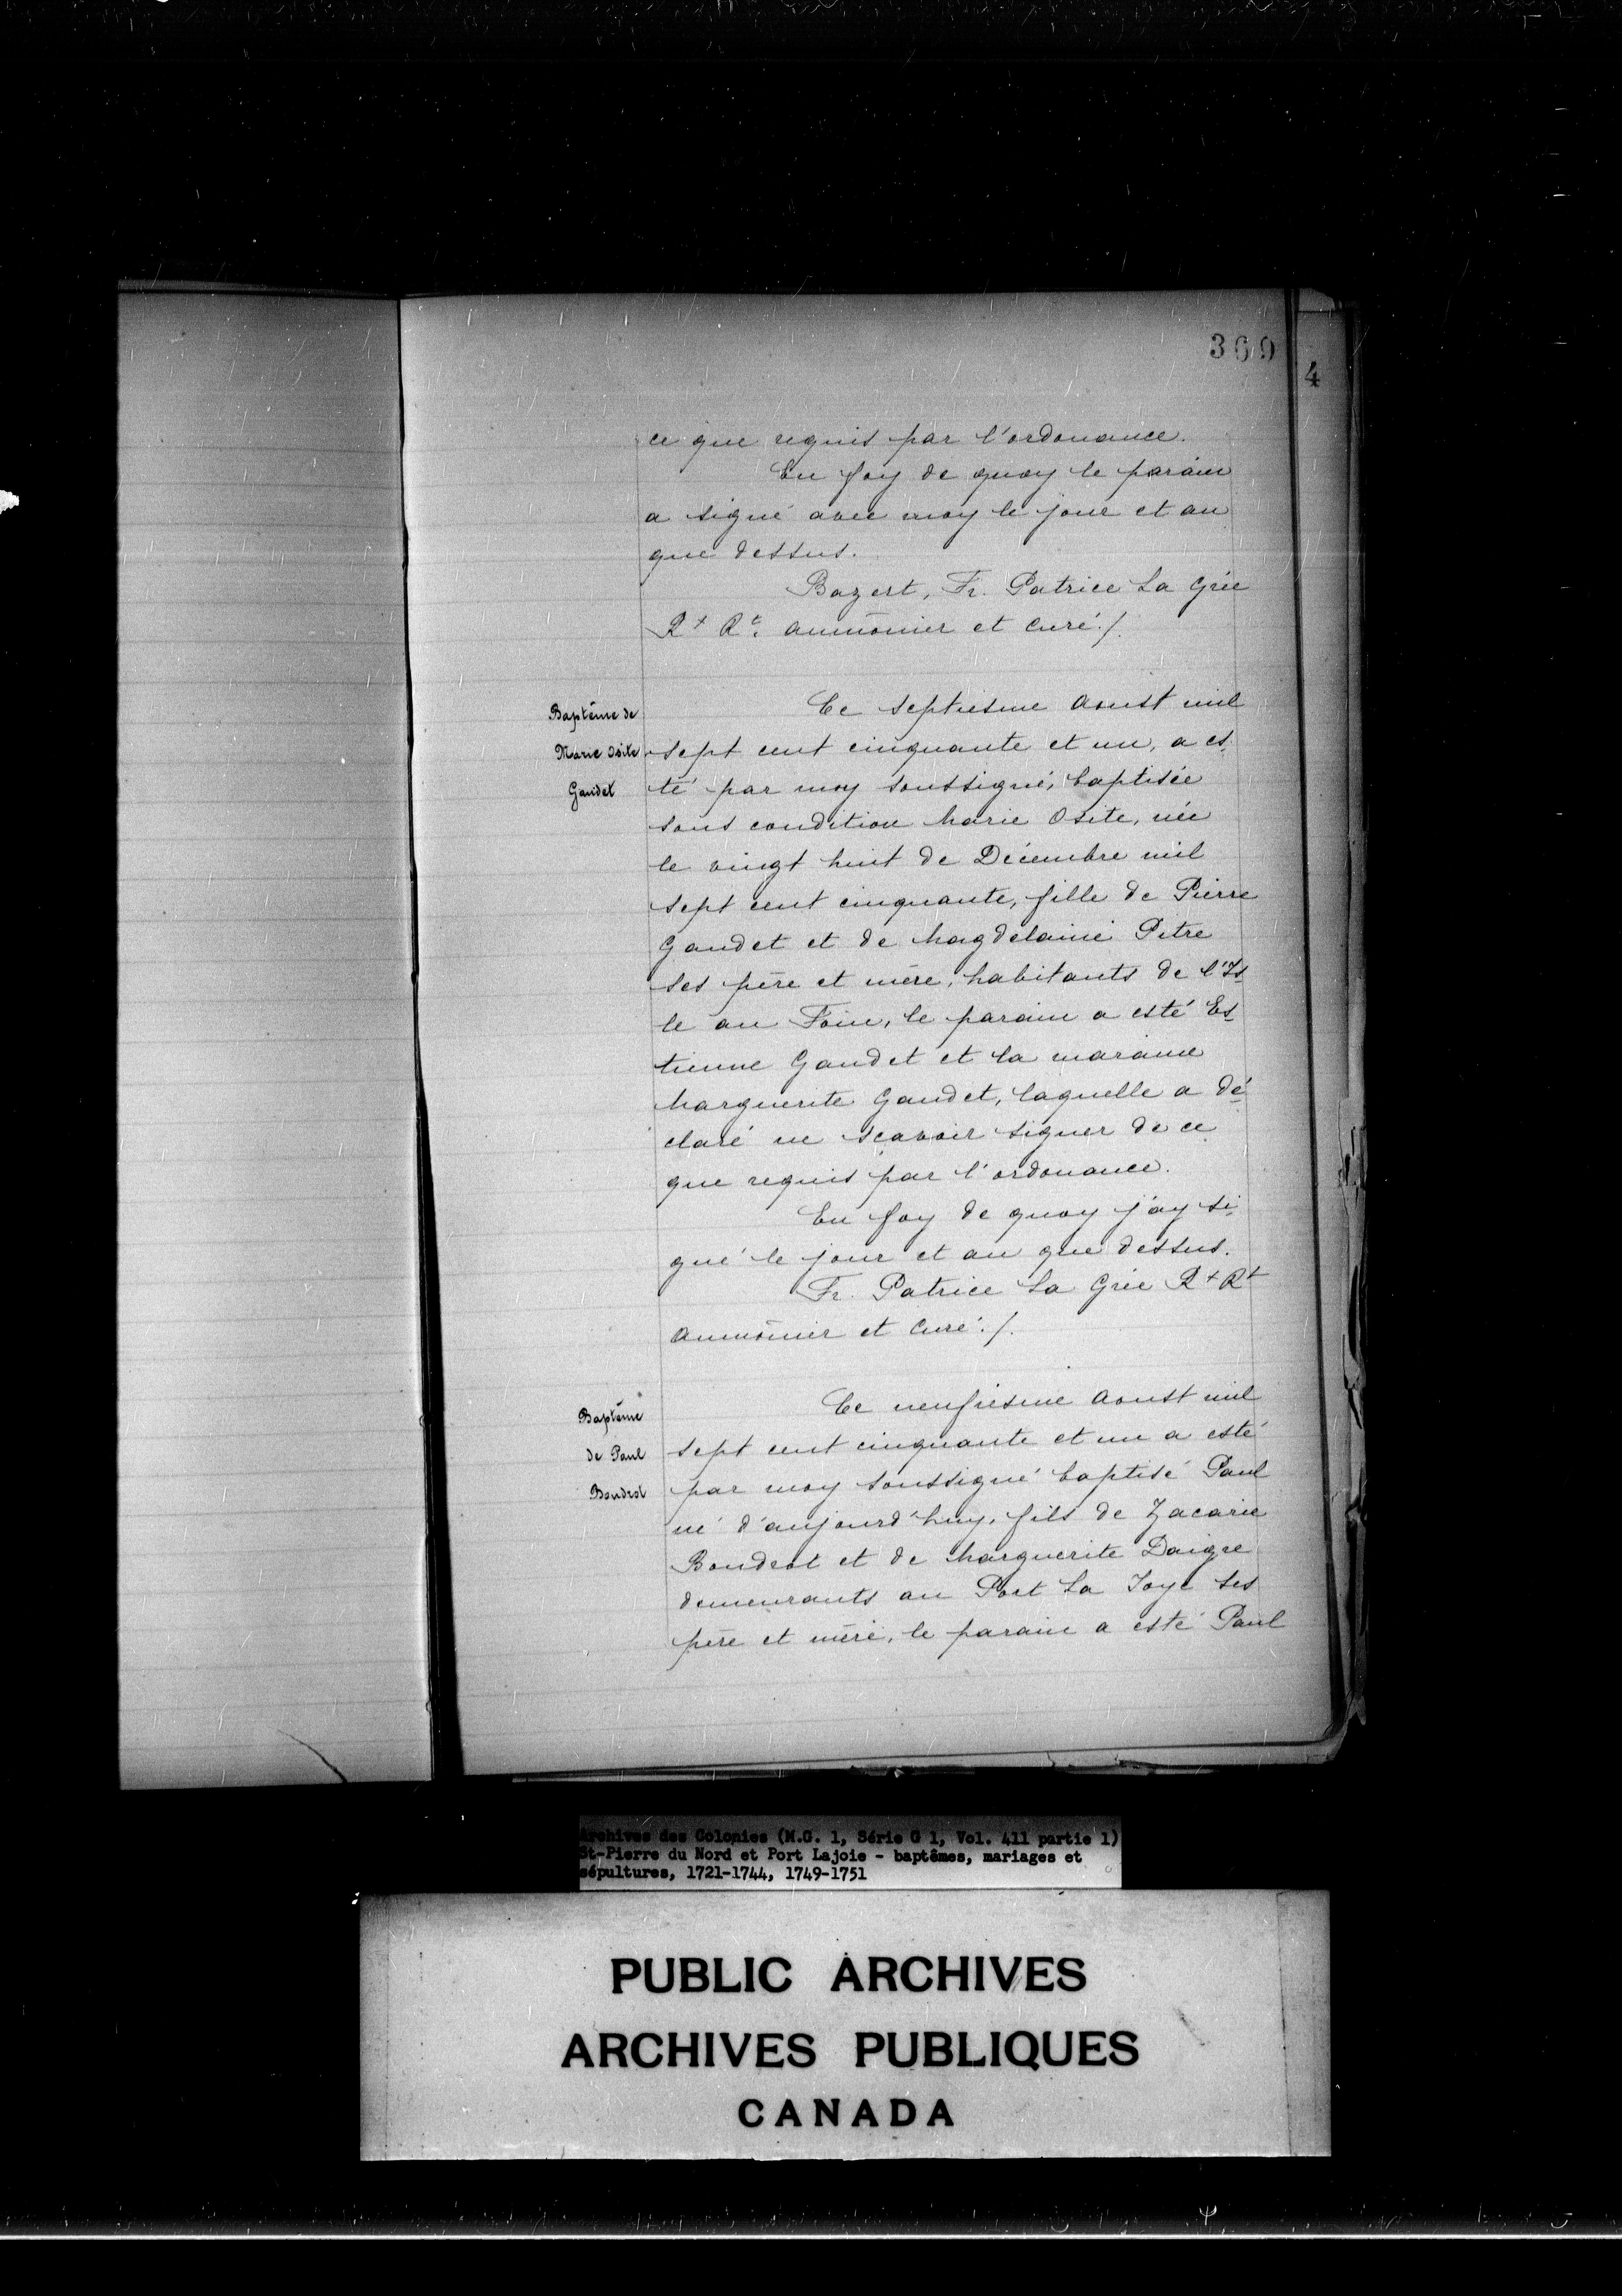 369
4
ce que requis par l'ordonance.
En foy de quoy le parain
a signé avec moy le jour et an
que dessus.
Bazert, Fr. Patrice La Grée
R+ Rt. aumônier et curé./.
Baptême de
Marie Osite
Gaudet
Ce septiesme Aoust mil
sept cent cinquante et un, a es
té par moy soussigné, baptisée
sous condition Marie Osite, née
le vingt huit de Décembre mil
sept cent cinquante, fille de Pierre
Gaudet et de Magdelaine Pitre
ses père et mère, habitants de l'Is
le au Foin, le parain a esté Es
tienne Gaudet et la maraine
Marguerite Gaudet, laquelle a dé
claré ne sçavoir signer de ce
que requis par l'ordonance.
En foy de quoy j'ay si
gné le jour et an que dessus.
Fr. Patrice La Grée R+ Rt
aumônier et curé./.
Baptême
de Paul
Boudrot
Ce neufiesme Aoust mil
sept cent cinquante et un a esté
par moy soussigné baptisé Paul
né d'aujourd'huy, fils de Zacarie
Boudrot et de Marguerite Daigre
demeurants au Port La Joye ses
père et mère, le parain a esté Paul
Archives des Colonies (M.G. 1, Série G 1, Vol. 411 partie 1)
St-Pierre du Nord et Port Lajoie - baptêmes, mariages et
sépultures, 1721-1744, 1749-1751
PUBLIC ARCHIVES
ARCHIVES PUBLIQUES
CANADA